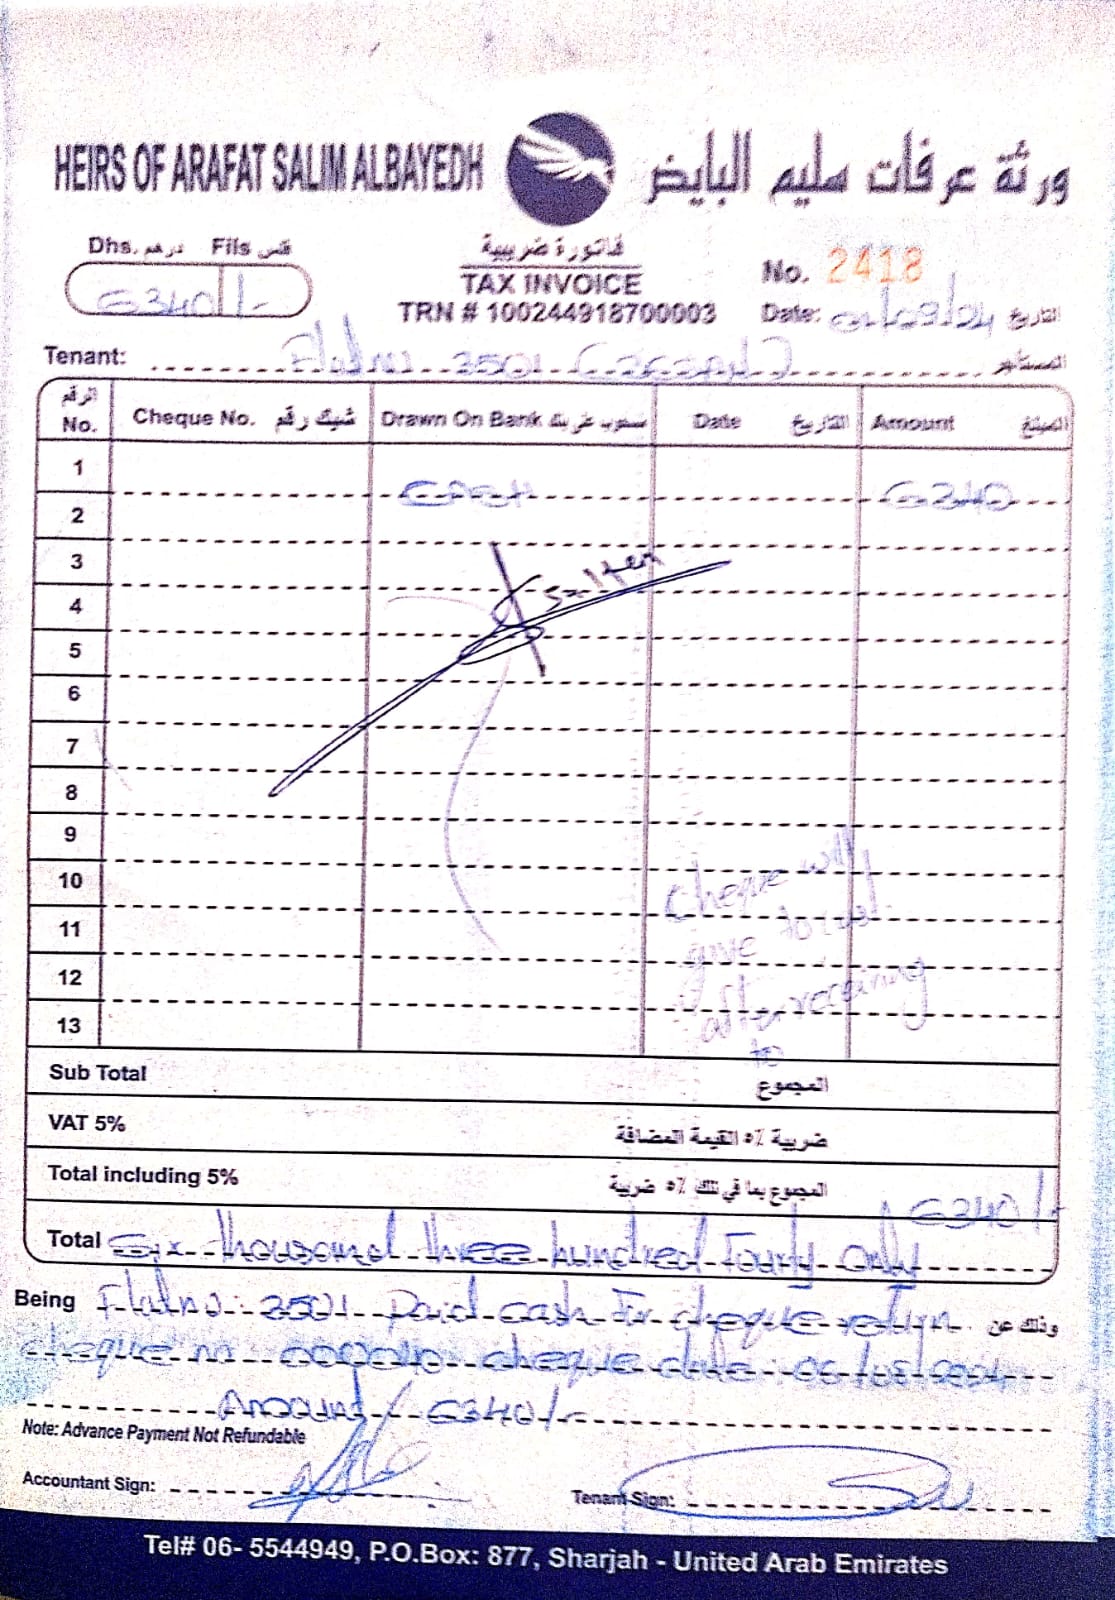 HEIRS OF ARAFAT SALIM ALBAYEDH ورثة عرفات سليم البايض
Dhs. درهم Fils فلس
6340/-
فاتورة ضريبية
TAX INVOICE
TRN # 100244918700003
No. 2418
Date: /09/24 التاريخ
Tenant: Flat no. 3501 المستأجر
الرقم No. Cheque No. شيك رقم Drawn On Bank مسحوب على بنك Date التاريخ Amount المبلغ
1 CASH 6340
2
3
4
5
6
7
8
9
10
11
12
13
Cheque will
give to
after receiving
Sub Total المجموع
VAT 5% ضريبة ٥٪ القيمة المضافة
Total including 5% المجموع بما في ذلك ٥٪ ضريبة 6340/-
Total Six thousand three hundred Fourty Only
Being Flat no: 3501 Paid cash for cheque return وذلك عن
cheque no 000040 cheque date: 06/05/2024
Amount/ 6340/-
Note: Advance Payment Not Refundable
Accountant Sign: Tenant Sign:
Tel# 06- 5544949, P.O.Box: 877, Sharjah - United Arab Emirates